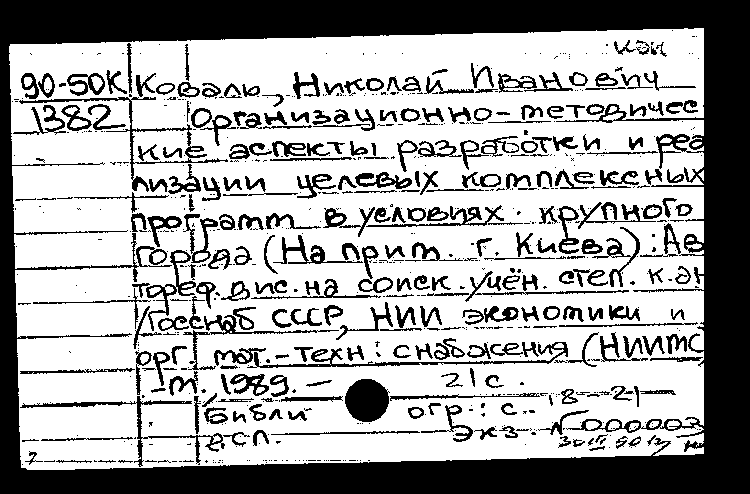 кэи
90-50К Коваль, Николай Иванович
1382 Организационно-методичес
кие аспекты разработки и реа
лизации целевых комплексных
программ в условиях крупного
города (На прим. г. Киева) : Ав
тореф. дис. на соиск. учён. степ. к. эк
/Госснаб СССР, НИИ экономики и
орг. мат.-техн. снабжения (НИИМС
.-м., 1989. — 21 с.
Библи огр.: с. 18-21—
Экз. № 000003